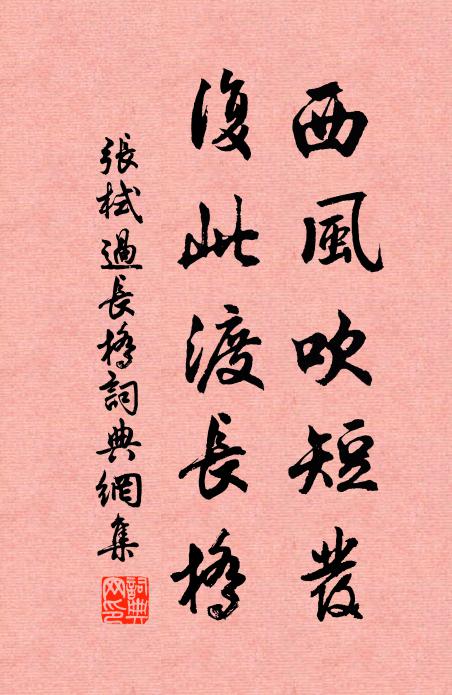 西風吹短發
復此渡長橋
張栻過長橋詞典網集
詞典網印